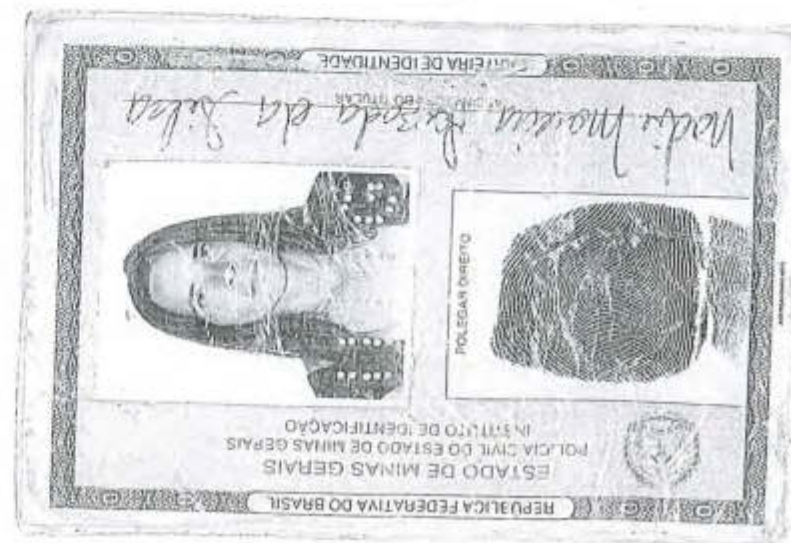 REPÚBLICA FEDERATIVA DO BRASIL
ESTADO DE MINAS GERAIS
POLICIA CIVIL DO ESTADO DE MINAS GERAIS
INSTITUTO DE IDENTIFICAÇÃO
POLEGAR DIREITO
da Silva
TITULAR
CARTEIRA DE IDENTIDADE